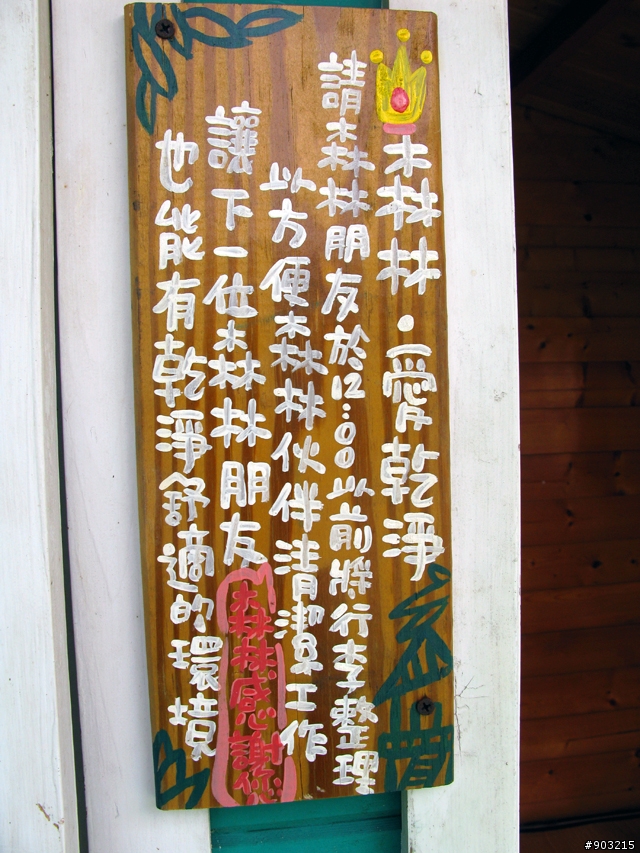 森林林·愛乾淨
請森林林朋友於12:00以前將行李整理
以方便森林林伙伴清潔工作
讓下一位森林林朋友
森林林感謝你
也能有乾淨舒適的環境
#903215